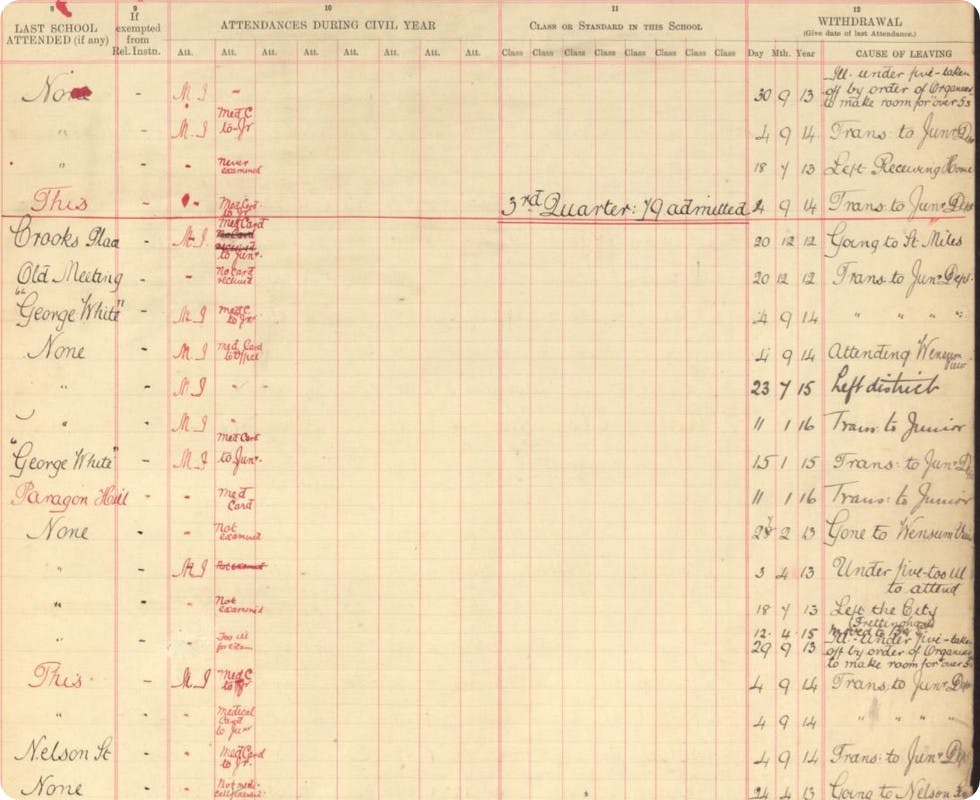 8 9 10 11 12
LAST SCHOOL ATTENDED (if any) If exempted from Rel. Instn. ATTENDANCES DURING CIVIL YEAR CLASS OR STANDARD IN THIS SCHOOL WITHDRAWAL (Give date of last Attendance.)
Att. Att. Att. Att. Att. Att. Att. Att. Class Class Class Class Class Class Class Class Day Mth. Year CAUSE OF LEAVING
None - M I " 30 9 13 Ill. under five - taken off by order of Organiser to make room for "over 5s
" - M. I Med C to Jr 4 9 14 Trans: to Junr Dep
" - - Never examined 18 7 13 Left Receiving Home
This - - Med Card to Jr 3rd Quarter: 79 admitted 4 9 14 Trans: to Junr Dept
Crooks Place - M I Med Card to Junr. 20 12 12 Going to St Miles
Old Meeting - - No card received 20 12 12 Trans to Junr Dept.
"George White" - M I Med C to Jr 4 9 14 " " " "
None - M I Med Card to Office 4 9 14 Attending Wensum View
" - M I " - 23 7 15 Left district
" - M I " 11 1 16 Trans: to Junior
"George White" - M I Med Card to Junr. 15 1 15 Trans: to Junr D
Paragon Hill - - Med Card 11 1 16 Trans: to Junior
None - - Not examined 2 13 Gone to Wensum View
" - M I Not examined 3 4 13 Under five - too ill to attend
" - - Not examined 18 7 13 Left the City
(Frettenham)
12. 4. 15 moved to
" - - Too ill for exam. 29 9 13 Ill - Under five - taken off by order of Organiser to make room for "over 5s
This - M I Med C to Jr 4 9 14 Trans: to Junr Dept
" - - Medical Card to Junr 4 9 14 " " " "
Nelson St - - Med Card to Jr. 4 9 14 Trans: to Junr Dep
None - - Not medically examined 24 4 13 Going to Nelson St